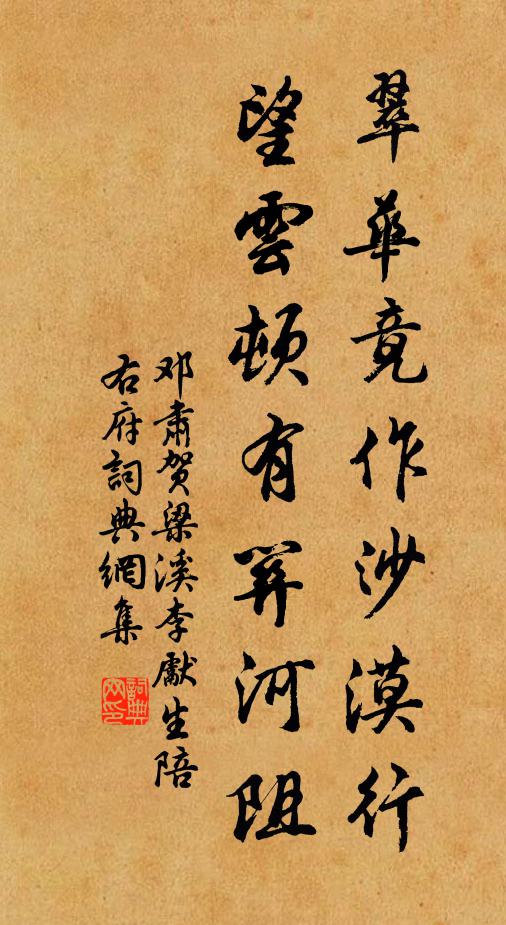 翠華竟作沙漠行
望雲頓有關河阻
邓肅贺梁溪李獻生陪
右府詞典網集
詞典網印